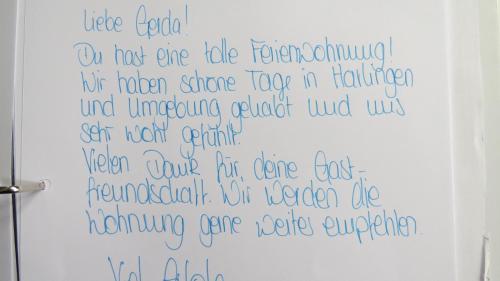 Liebe Gerda!
Du hast eine tolle Ferienwohnung!
Wir haben schöne Tage in Harlingen
und Umgebung gehabt und uns
sehr wohl gefühlt.
Vielen Dank für deine Gast-
freundschaft. Wir werden die
Wohnung gerne weiter empfehlen.